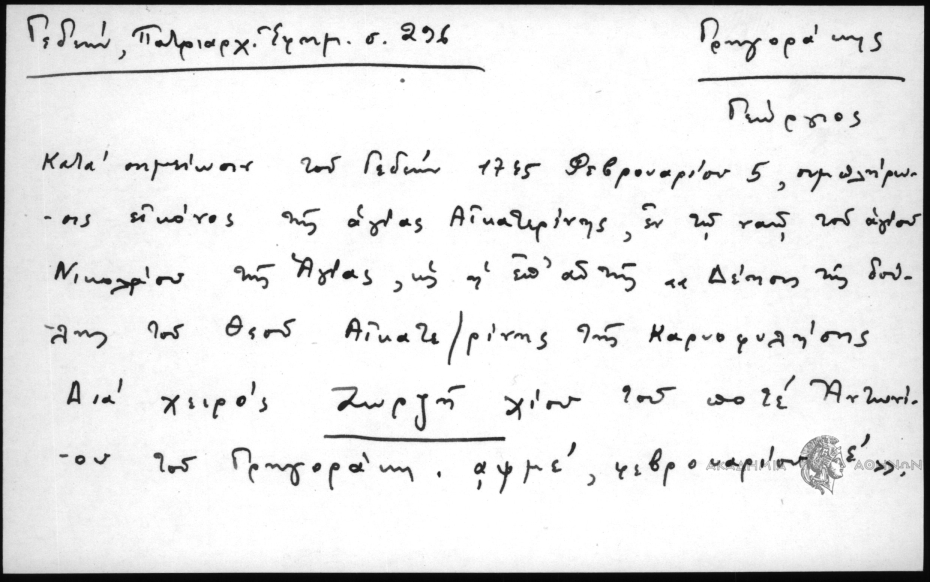 Γεδεών, Πατριαρχ. Ἐφημ. σ. 296
Γρηγοράκης
Γεώργιος
Κατά σημείωσιν τοῦ Γεδεών 1745 Φεβρουαρίου 5, συμπλήρω-
-σις εἰκόνος τῆς ἁγίας Αἰκατερίνης, ἐν τῷ ναῷ τοῦ ἁγίου
Νικολάου τῆς Ἁγίας, ἧς ἡ ἐπ' αὐτῆς «Δέησις τῆς δού-
-λης τοῦ Θεοῦ Αἰκατε/ρίνης τῆς Καρυοφυλλήσης
Διά χειρός Ζωρζῆ χίου τοῦ ποτέ Ἀντωνί-
-ου τοῦ Γρηγοράκη. ͵αψμε', φεβρουαρίου ε'».
ΑΚΑΔΗΜΙΑ ΑΘΗΝΩΝ